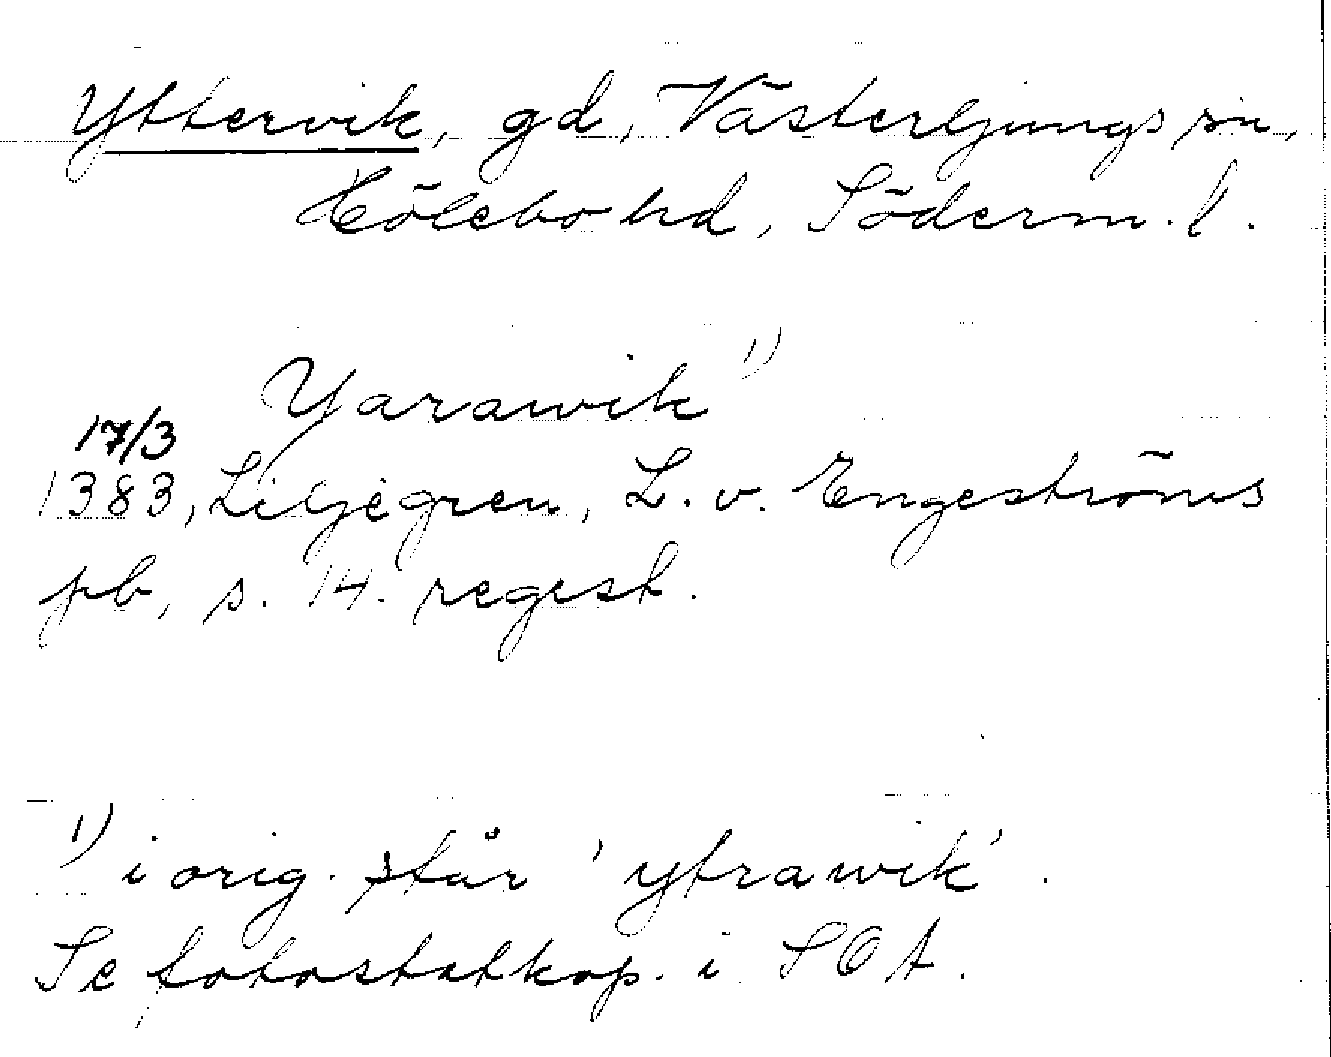 Yttervik, gd, Västerljungs sn,
Hölebo hd, Söderm. l.
Yarawik 1)
17/3
1383, Liljegren, L. v. Engeströms
pb, s. 14. regest.
1) i orig. står 'ytrawik'.
Se fotostatkop. i SOA.